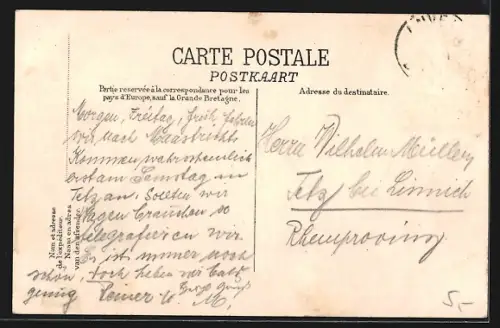 CARTE POSTALE
POSTKAART
Partie reservée à la correspondance pour les
pays d'Europe, sauf la Grande Bretagne.
Adresse du destinataire.
Nom et adresse
de l'expéditeur.
Naam en adres
van den afzender.
Morgen, Freitag, früh, fahren
wir nach Maastricht.
Kommen, wahrscheinlich
erst am Samstag in
Tetz an. Sollten wir
Wagen brauchen so
telegrafieren wir.
Es ist immer noch
schön, doch haben wir bald
genug
Herrn Wilhelm Müller
Tetz bei Linnich
Rheinprovinz
5,-